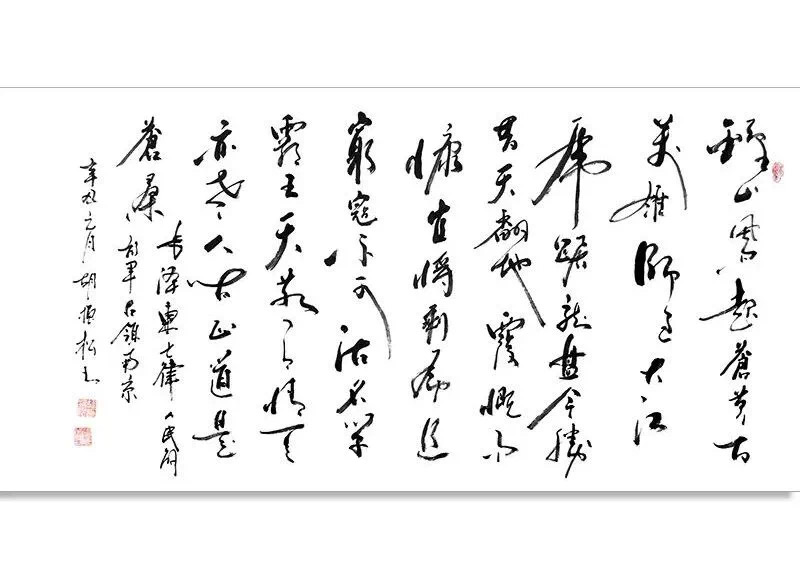 鍾山風雨起蒼黄百
萬雄師過大江
虎踞龍盘今勝
昔天翻地覆慨而
慷宜將剩勇追
窮寇不可沽名學
霸王天若有情天
亦老人间正道是
蒼桑
毛泽東七律人民解
放軍占領南京
辛丑月胡松书